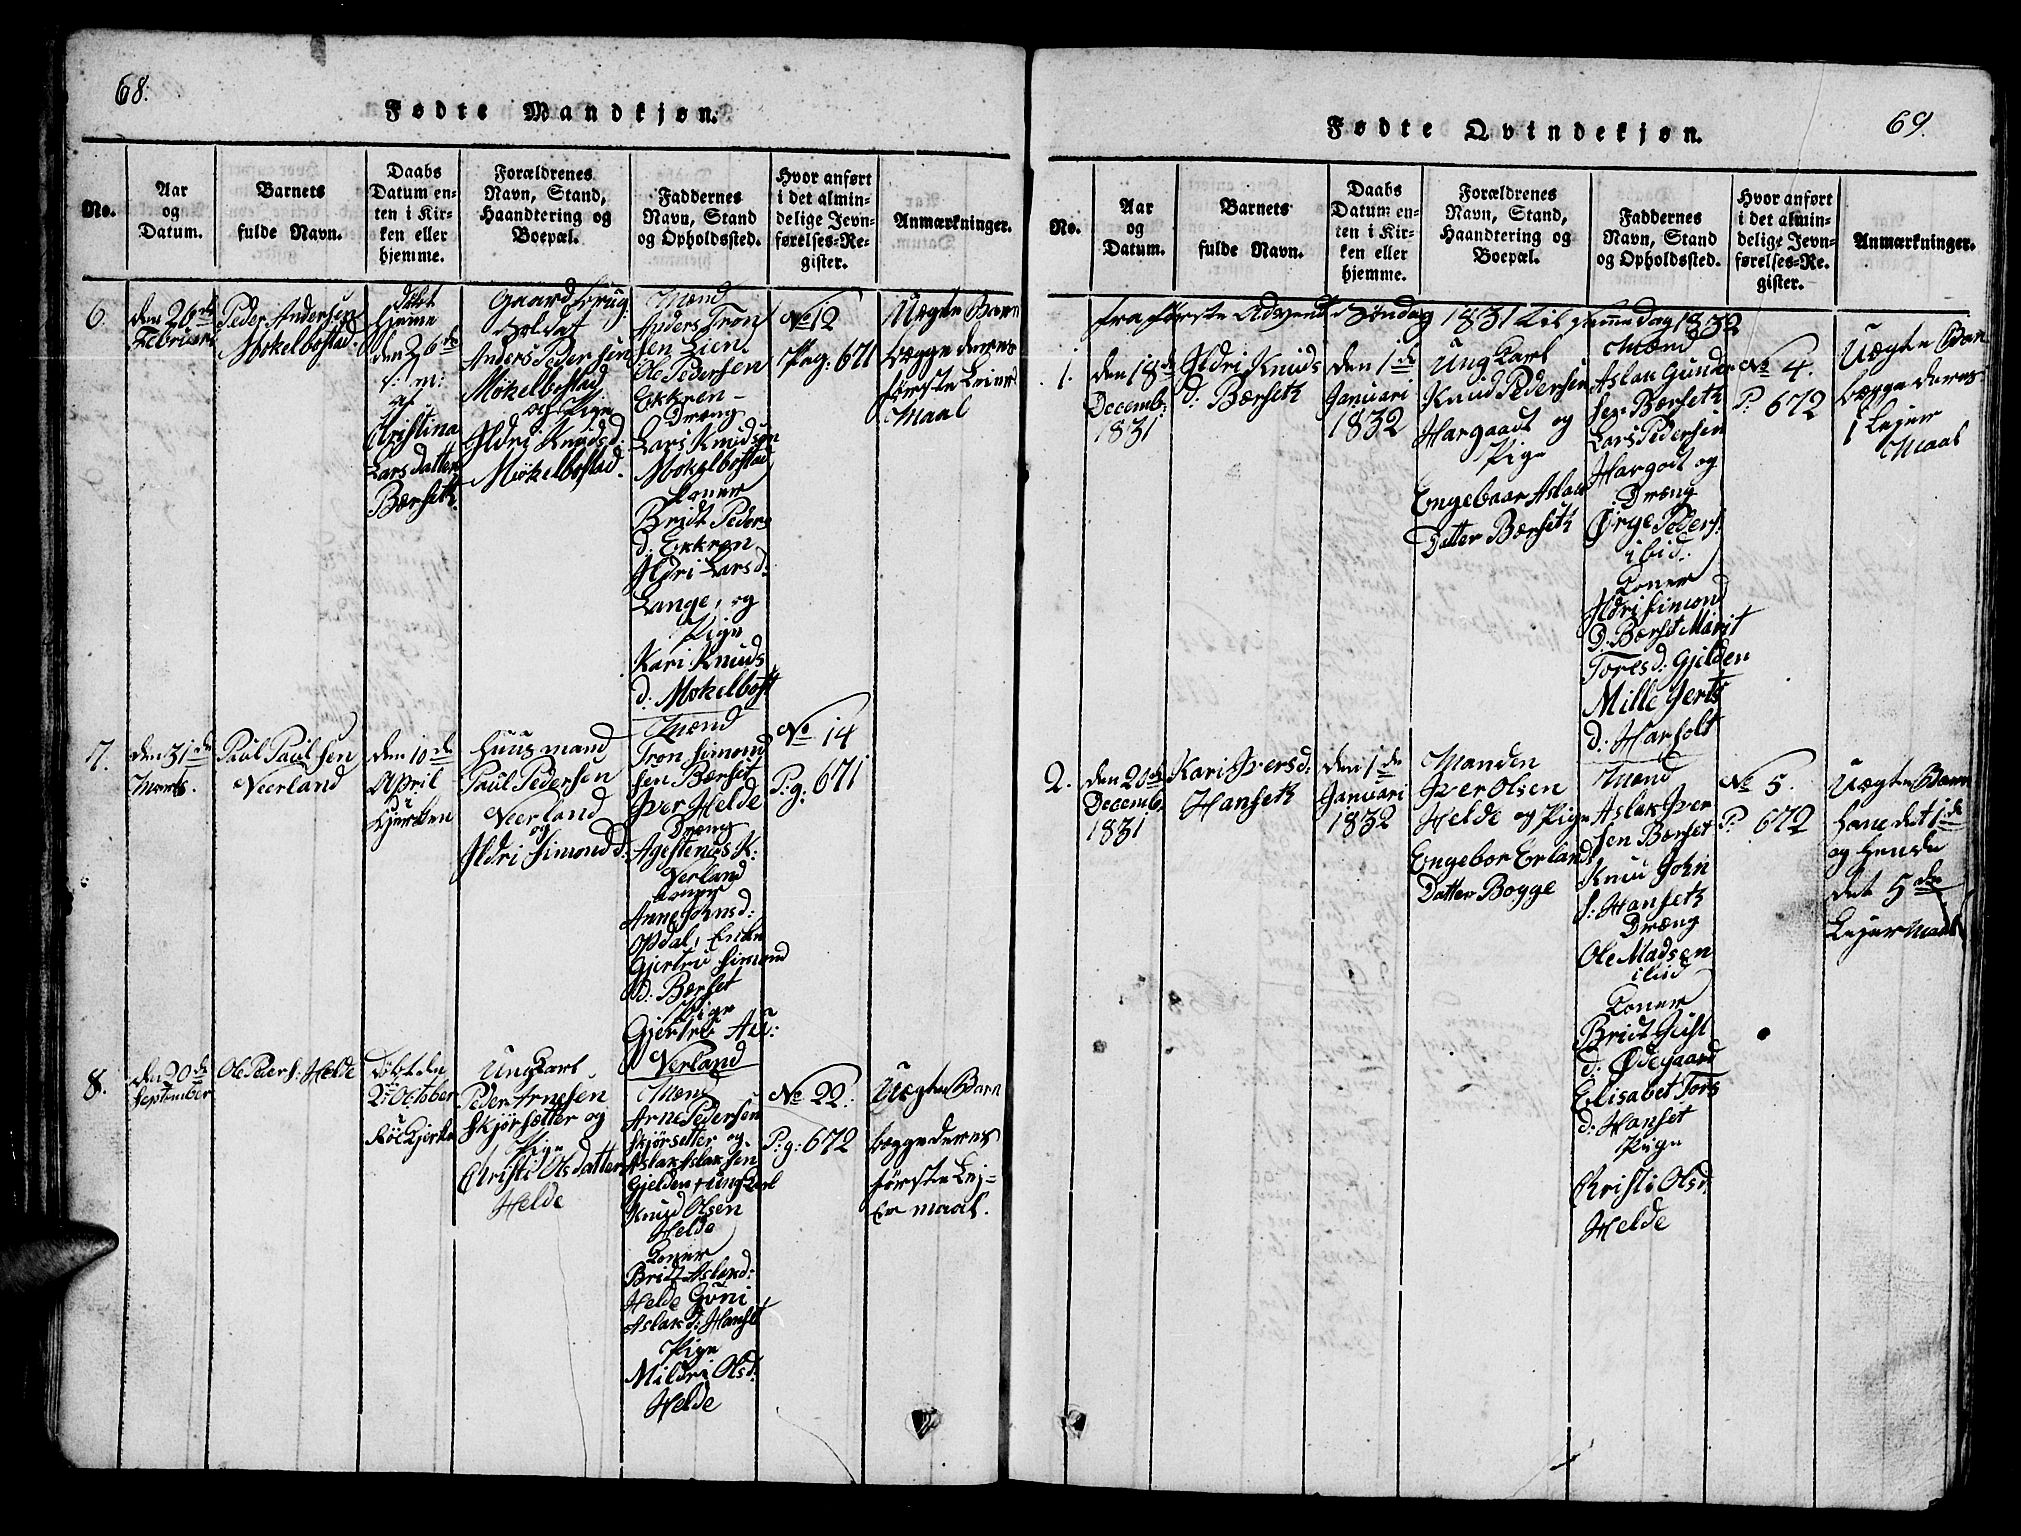 68.
Fødte Mandkjøn.
No.
Aar
og
Datum.
Barnets
fulde Navn.
Daabs
Datum en-
ten i Kir-
ken eller
hjemme.
Forældrenes
Navn, Stand,
Haandtering og
Boepæl.
Faddernes
Navn, Stand
og Opholdssted.
Hvor anført
i det almin-
delige Jevn-
førelses-Re-
gister.
Anmærkninger.
6.
den 26de
Februari
Peder Andersen
Mökelbostad.
Döbt
Hjemme
den 26de
s: m:
af
Cristina
Lars datter
Bærsetk.
Gaard brug:
Soldat
Anders Pedersen
Mökelbostad
og Pige
Ildri Knudsd:
Mökelbostad.
Mænd
Anders Tron
sen Lien
Ole Pedersen
Ekkren-
Dreng
Lars Knudsøn
Mökelbostad
Koner
Bridt Peders
d: Ekkren
Ildri Larsd:
Lange, og
Pige
Kari Knuds
d: Mökelbost
No 12
Pag: 671
Uægte Barn
begge deres
første Leier
Maal
7.
den 31de
Marts.
Paul Paulsen
Neerland
den 10de
April
i
Kjerken
Huusmand
Paul Pedersen
Neerland
og
Ildri Simondd:
Mænd
Tron Simond
sen Bærset
Iver Helde
Dreng
Agestenus K:
Nerland
Koner
Anne Johnsd:
Opdal, Enke
Gjertru Simond
d: Bærset
Pige
Gjertru
Nerland
No 14
P:g: 671
8.
den 20de
September
Ole Peders: Helde
Döbt den
2de October
Röe Kjerke
Ung Karl
Peder Arnesen
Skjörsætter og
Pige
Christi Olsdatter
Helde
Mænd
Arne Pedersen
Skjörsetter og
Aslak Aslaksen
Gjelden, Ung Karl
Knud Olsen
Helde
Koner
Bridt Aslakd:
Helde Guni
Aslakd: Hanset
Pige
Mildri Olsd:
Helde
No 22.
P:g: 672
Uægte Barn
begge deres
første Lej-
er maal.
69.
Fødte Qvindekjøn.
No.
Aar
og
Datum.
Barnets
fulde Navn.
Daabs
Datum en-
ten i Kir-
ken eller
hjemme.
Forældrenes
Navn, Stand,
Haandtering og
Boepæl.
Faddernes
Navn, Stand
og Opholdssted.
Hvor anført
i det almin-
delige Jevn-
førelses-Re-
gister.
Anmærkninger.
fra første Advent Söndag 1831 til samme dag 1832
1.
den 18de
Decemb:
1831
Ildri Knuds
d: Bærsetk
den 1de
Januari
1832
Ung Karl
Knud Pedersen
Hargaadt og
Pige
Engebaar Aslak
Datter Bærsetk
Mænd
Aslak Gunder
sen Bærsetk
Lars Pedersen
Hargodt og
Dreng
Ørge Peders:
ibid:
Koner
Ildri Simond
D. Bærset Marit
Tores d: Gjelden
Mille Gerts
d: Harholt
No 4.
P: 672
Uægte Barn
begge deres
1 Lejer
Maal
2.
den 20de
Decemb:
1831
Kari Ivers d:
Hansetk
den 1de
Januari
1832
Manden
Iver Olsen
Helde og Pige
Engebor Erlands
Datter Bogge
Mænd
Aslak Iver
sen Bærset
Knud John
s: Hansetk
Dreng
Ole Madsen
ibid
Koner
Bridt
d: Ødegaard
Elisabet Tors
d: Hanset
Pige
Kristi Olsd:
Helde
No 5.
P: 672
Uægte Barn
hans det 1de
og hendes
det 5de
Lejermaal